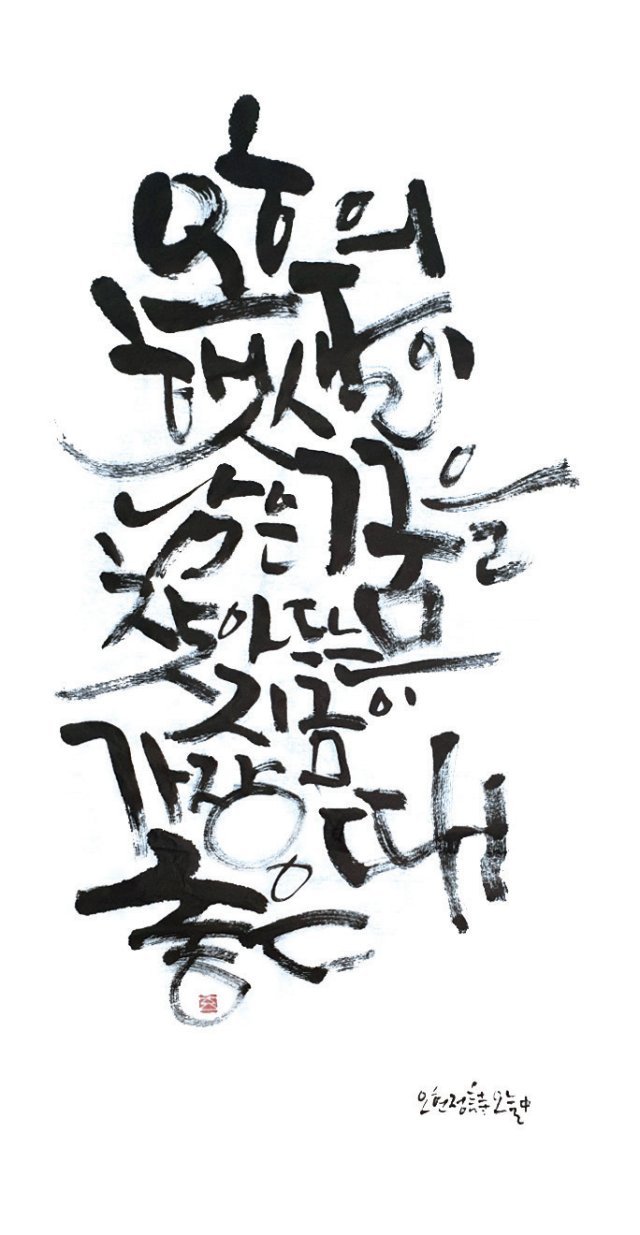 오후의
햇살이
꿈을
찾아드는
지금이
가장
좋은 때
오현정 詩 오늘 中